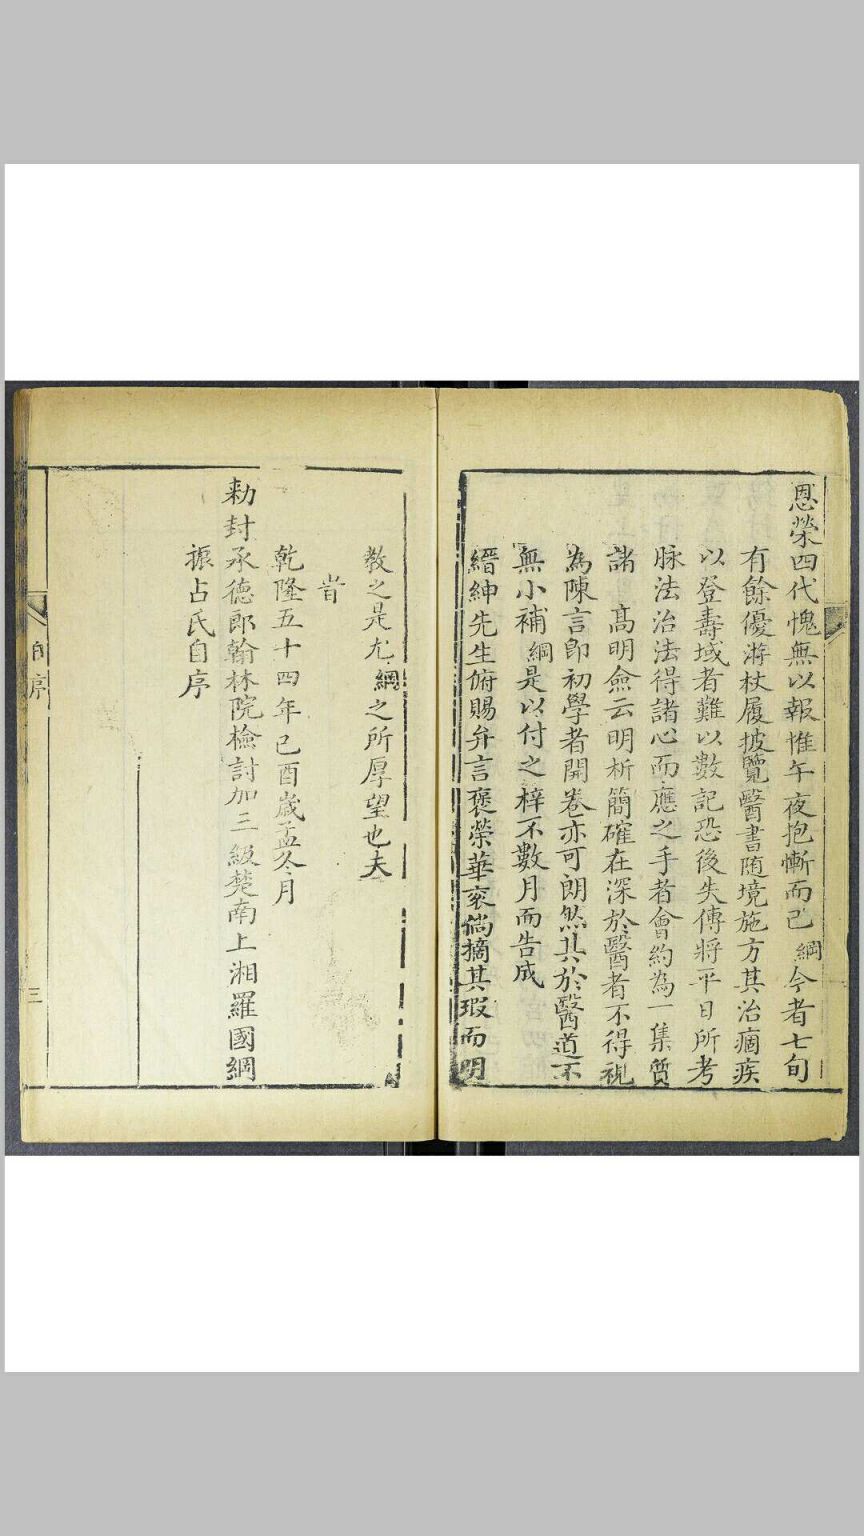 恩榮四代愧無以報惟午夜抱慚而已綱今者七旬
有餘優游杖履披覽醫書随境施方其治痼疾
以登壽域者難以數記恐後失傳將平日所考
脉法治法得諸心而應之手者會約為一集質
諸 髙明僉云明析簡確在深於醫者不得視
為陳言卽初學者開卷亦可朗然其於醫道不
無小補綱是以付之梓不數月而告成
縉紳先生俯賜弁言褒榮華衮倘摘其瑕而明
教之是尤綱之所厚望也夫
旹
乾隆五十四年己酉歲孟冬月
勑封承德郎翰林院檢討加三級楚南上湘羅國綱
振占氏自序
自序
三